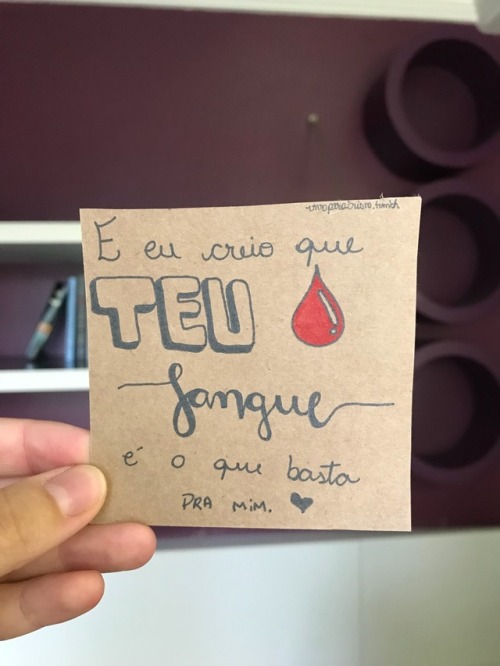 E eu creio que
TEU
Sangue
é o que basta
PRA MIM.